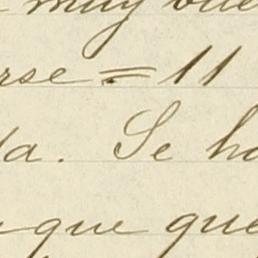 muy bue
rse = 11
da. Se ha
que que